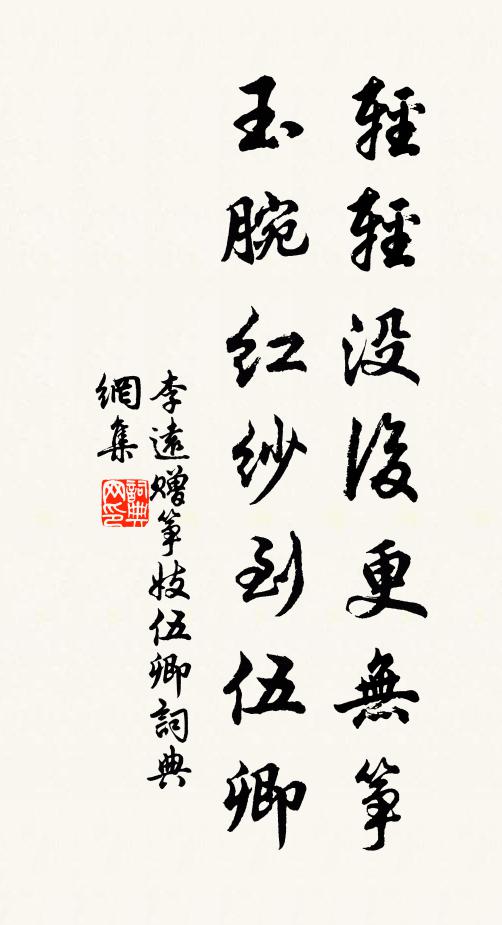 輕輕没後更無箏
玉腕紅紗到伍卿
李遠赠箏妓伍卿詞典
網集
詞典
网印